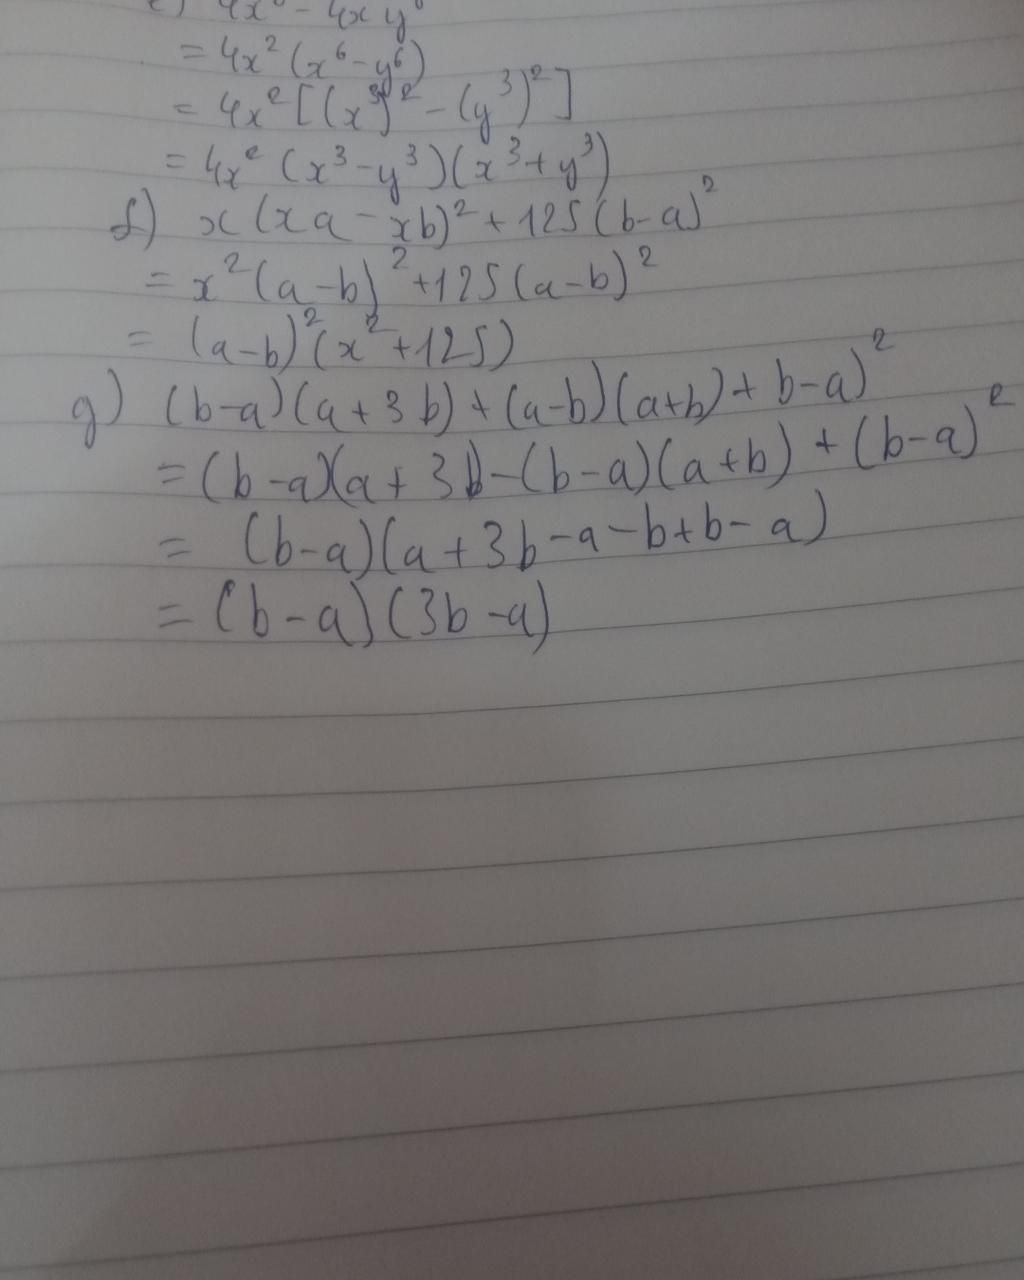 e) 4x⁸ - 4x y⁶
= 4x² (x⁶ - y⁶)
= 4x² [(x³)² - (y³)²]
= 4x² (x³ - y³)(x³ + y³)
f) x (xa - xb)² + 125 (b-a)²
= x² (a-b)² + 125 (a-b)²
= (a-b)² (x² + 125)
g) (b-a)(a + 3b) + (a-b)(a+b) + b-a)²
= (b-a)(a + 3b - (b-a)(a+b) + (b-a)²
= (b-a)(a + 3b - a - b + b - a)
= (b-a)(3b - a)